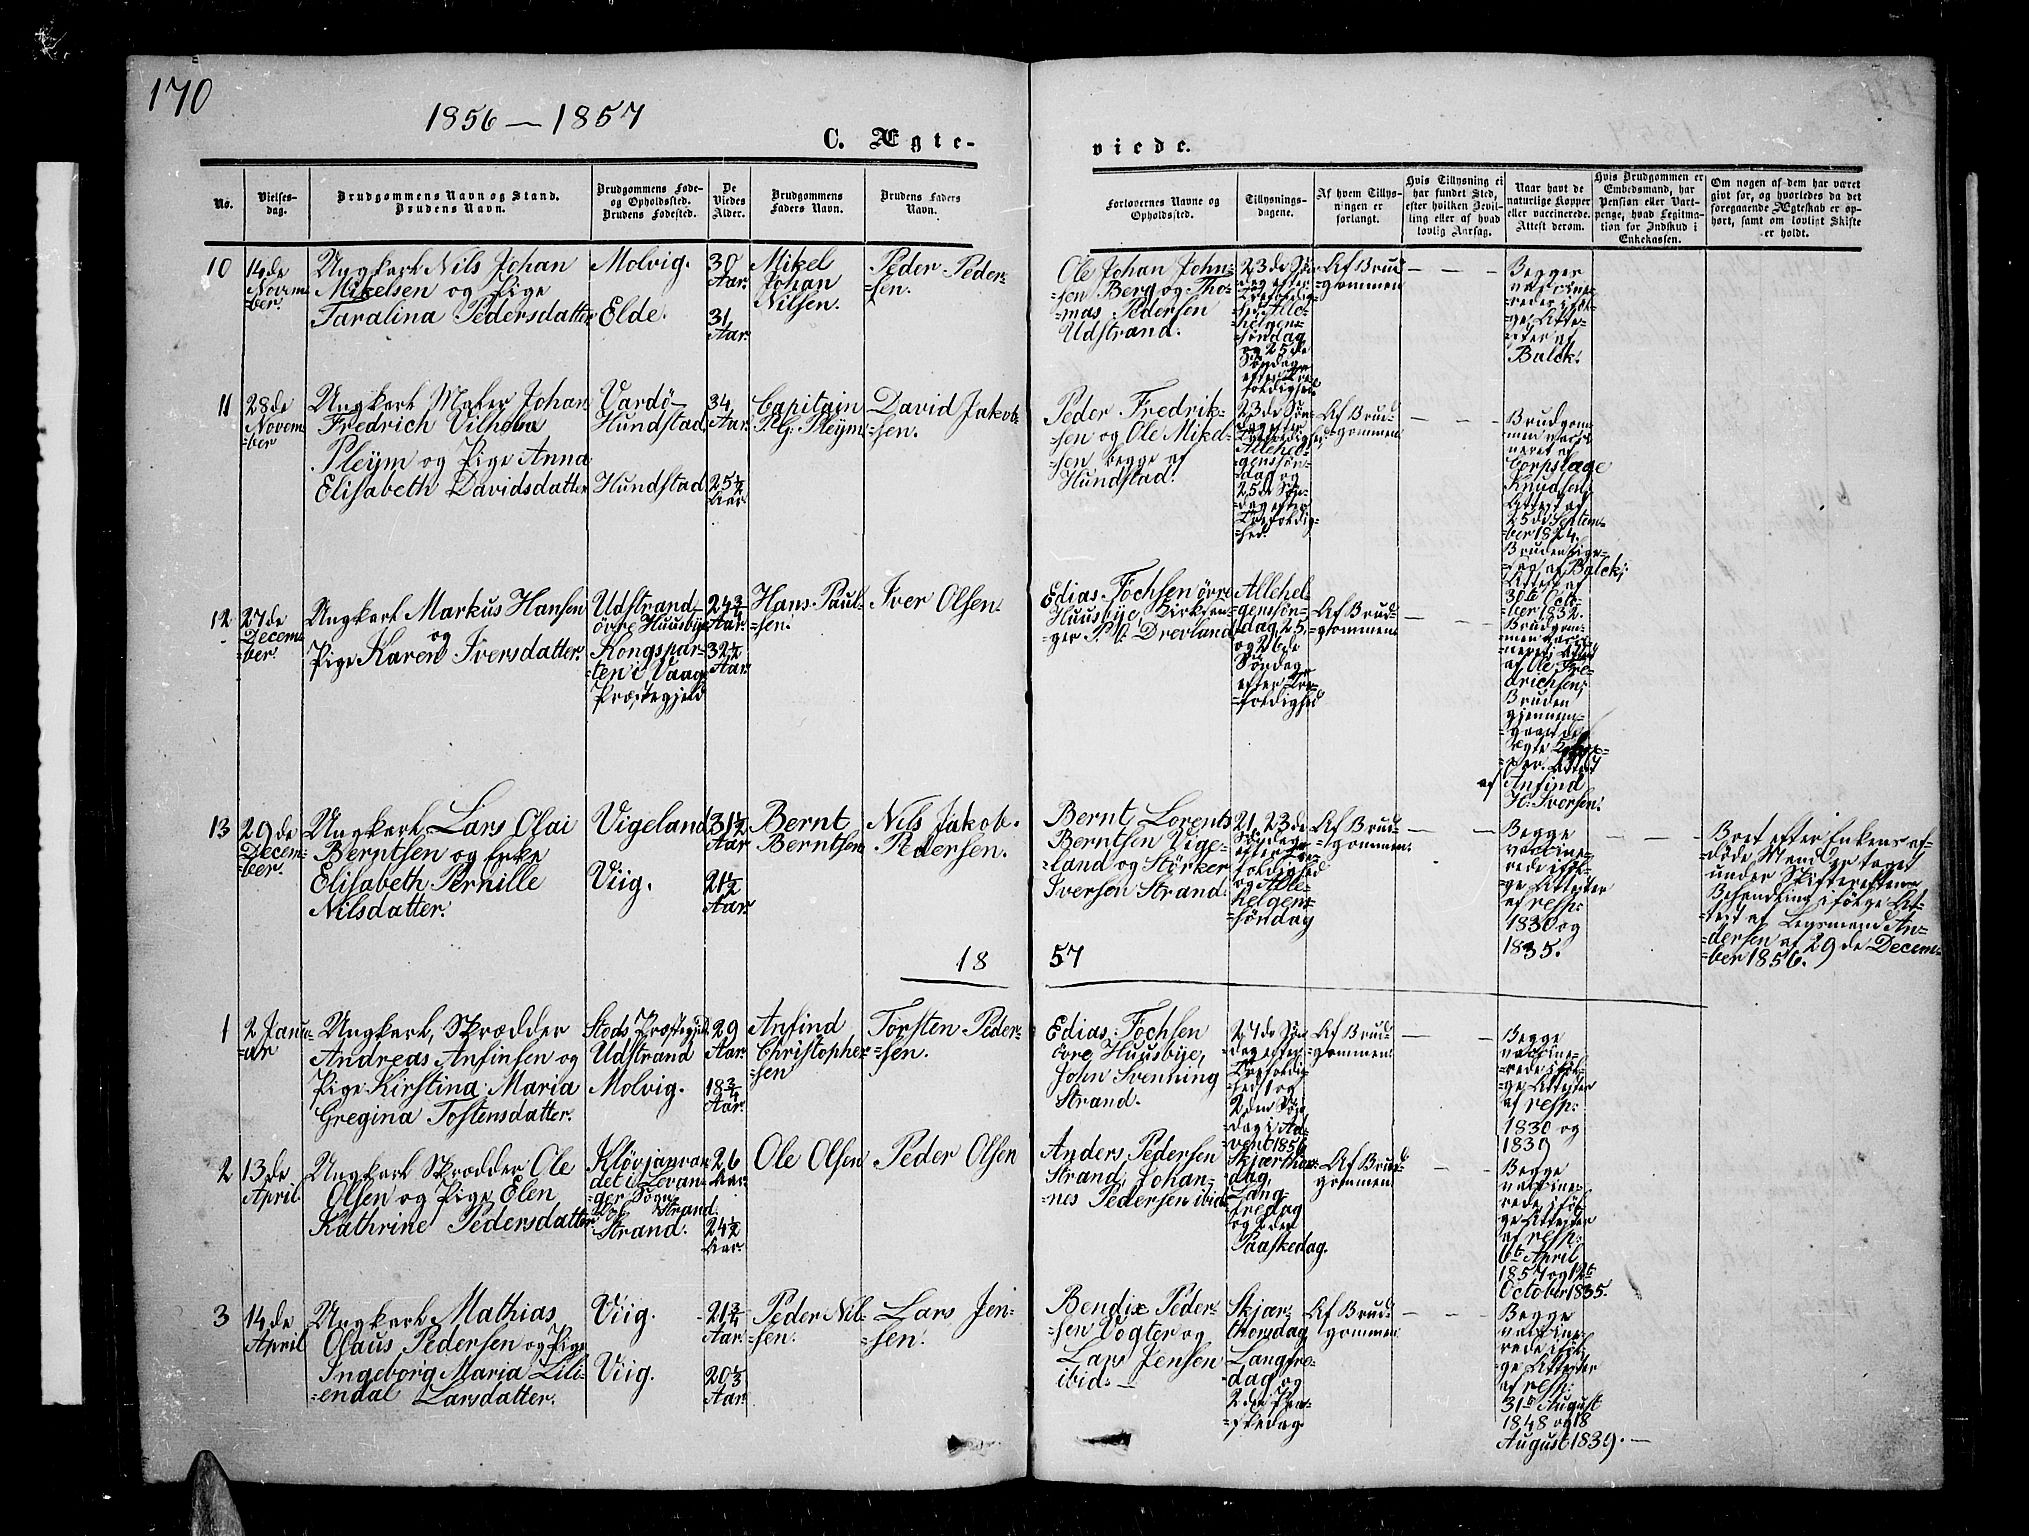 170
1856 — 1857
C. Ægte-
viede.
No.
Vielses-
dag.
Brudgommens Navn og Stand.
Brudens Navn.
Brudgommens Føde-
og Opholdssted.
Brudens Fødested.
De
Viedes
Alder.
Brudgommens
Faders Navn.
Brudens Faders
Navn.
Forlovernes Navne og
Opholdssted.
Tillysnings-
dagene.
Af hvem Tillys-
ningen er
forlangt.
Hvis Tillysning ei
har fundet Sted,
efter hvilken Bevil-
ling eller af hvad
lovlig Aarsag.
Naar havt de
naturlige Kopper
eller vaccinerede.
Attest derom.
Hvis Brudgommen er
Embedsmand, har
Pension eller Vart-
penge, hvad Legitima-
tion for Indskud i
Enkekassen.
Om nogen af dem har været
gift før, og hvorledes da det
foregaaende Ægteskab er op-
hørt, samt om lovligt Skifte
er holdt.
10
14de
Novem-
ber.
Ungkarl Nils Johan
Mikelsen og Pige
Taralina Pedersdatter
Molvig.
Elde.
30
Aar.
31
Aar.
Mikel
Johan
Nilsen.
Peder Peder-
sen.
Ole Johan John-
sen Berg og Tho-
mas Pedersen
Udstrand.
23de Søn-
dag efter
Trefoldig-
hed, Alle-
helgens
søndag
og 25de
Søndag
efter Tre-
foldighed.
Af Brud-
gommen
Begge
vaccine-
rede iføl-
ge Atte-
ster af
Balck.
11
28de
Novem-
ber
Ungkarl Maler Johan
Fredrich Vilhelm
Pleym og Pige Anna
Elisabeth Davidsdatter
Vardø-
Hundstad
Hundstad
34
Aar.
25½
Aar.
Capitain
P. G. Pleym
David Jakob-
sen.
Peder Fredrik-
sen og Ole Mikel-
sen begge af
Hundstad.
23de Søn-
dag efter
Trefoldighed,
Allehel-
genssøn-
dag og
25de Søn-
dag efter
Trefoldig-
hed.
Af Brud-
gommen
Brudgom-
men vacci-
neret af
Corpslæge
Knudsen
Attest af
25de Septem-
ber 1824.
Bruden lige-
saa af Balck,
Attest af
30te Octo-
ber 1832.
12
27de
Decem-
ber.
Ungkarl Markus Hansen
og
Pige Karen Iversdatter.
Udstrand-
øvre Huusbye
Kongspar-
ten i Vaag
Præstegjeld
24¾
Aar.
32½
Aar.
Hans Paul-
sen.
Iver Olsen.
Edias Fochsen øvre
Huusbye, Kirkesan-
ger P. A. Dreeland
Allehel-
genssøn-
dag, 25
og 26de
Søndag
efter Tre-
foldighed
Af Brud-
gommen
Brudgom-
men vacci-
neret, Attest
af Ole Fre-
drichsen;
Bruden
gjennem-
gaaende
ægte Kop-
per. Attest
af Anfind
H: Iversen.
13
29de
Decem-
ber.
Ungkarl Lars Olai
Berntsen og Enke
Elisabeth Pernille
Nilsdatter.
Vigeland
Viig.
31½
Aar
21½
Aar.
Bernt
Berntsen
Nils Jakob
Pedersen.
Bernt Lorents
Berntsen Vige-
land og Størker
Iversen Strand.
21, 23de
Søndag
efter Tre-
foldighed
og Alle-
helgens-
søndag
Af Brud-
gommen.
Begge
vaccine-
rede iføl-
ge Attester
af resp:
1830 og
1835.
Boet efter Enkens af-
døde Mand er taget
under Skifterettens
Behandling ifølge At-
test af Lensmand An-
dersen af 29de Decem-
ber 1856.
18
57
1
2 Janu-
ar
Ungkarl, Skrædder
Andreas Anfinsen og
Pige Kirstina Maria
Gregina Tostensdatter.
Stods Præstegjeld
Udstrand
Molvig.
29
Aar.
18¾
Aar.
Anfind
Christopher-
sen
Torsten Peder-
sen.
Edias Fochsen
Øvre Huusbye,
John Svenning
Strand.
27de Søn-
dag efter
Trefoldig-
hed, 1 og
2den Søn-
dag i Ad-
vent 1856
Af Brud-
gommen
Begge
vaccine-
rede iføl-
ge Attester
af resp:
1830 og
1839
2
13de
April.
Ungkarl Skrædder Ole
Olsen og Pige Elen
Kathrine Pedersdatter
det i Levan-
ger Sogn
Strand.
Strand.
26
Aar.
24½
Aar.
Ole Olsen
Peder Olsen
Anders Pedersen
Strand, Johan-
nes Pedersen ibid.
Skjærthors-
dag,
Lang-
fredag
og 2den
Paaskedag.
Af Brud-
gommen.
Begge
vaccine-
rede iføl-
ge Attester
af resp:
6te April
1857 og 12te
October 1835.
3
14de
April
Ungkarl Mathias
Olaus Pedersen og Pige
Ingeborg Maria Lili-
endal Larsdatter.
Viig.
Viig.
21¾
Aar.
20⅓
Aar.
Peder Nil-
sen.
Lars Jen-
sen.
Bendix Peder-
sen Vogter og
Lars Jensen
ibid.
Skjær-
thorsdag
Langfre-
dag og
2den Paa-
skedag
Af Brud-
gommen
Begge
vaccine-
rede iføl-
ge Attester
af resp:
31te August
1848 og 18
August 1839.